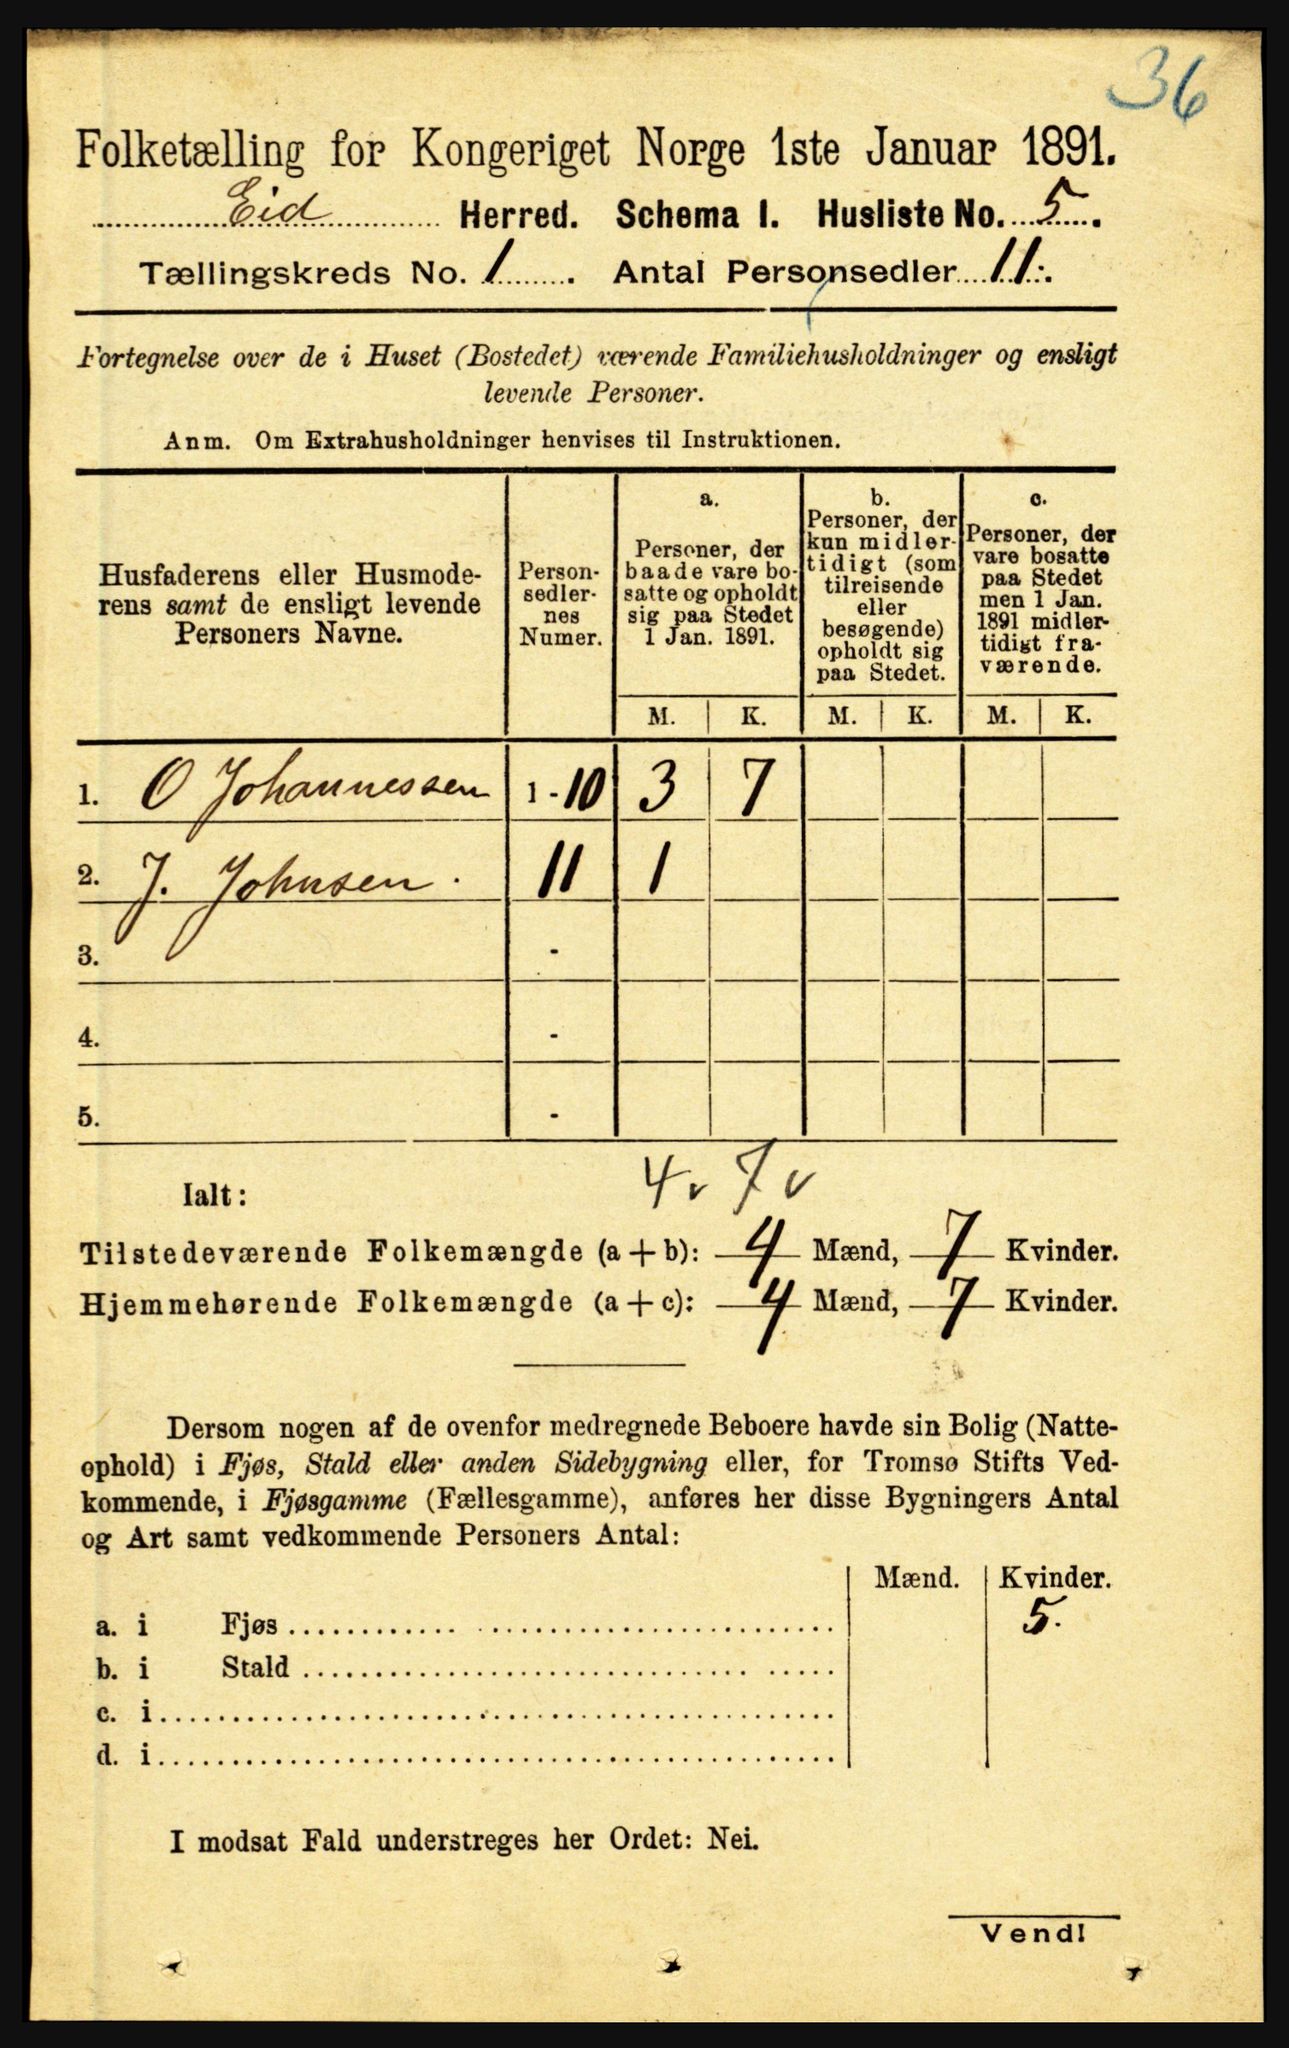 36
Folketælling for Kongeriget Norge 1ste Januar 1891.
Eid Herred. Schema I. Husliste No. 5.
Tællingskreds No. 1. Antal Personsedler 11.
Fortegnelse over de i Huset (Bostedet) værende Familiehusholdninger og ensligt
levende Personer.
Anm. Om Extrahusholdninger henvises til Instruktionen.
Husfaderens eller Husmode-
rens samt de ensligt levende
Personers Navne.
Person-
sedler-
nes
Numer.
a.
Personer, der
baade vare bo-
satte og opholdt
sig paa Stedet
1 Jan. 1891.
b.
Personer, der
kun midler-
tidigt (som
tilreisende
eller
besøgende)
opholdt sig
paa Stedet.
c.
Personer, der
vare bosatte
paa Stedet
men 1 Jan.
1891 midler-
tidigt fra-
værende.
M. K. M. K. M. K.
1. O Johannessen 1 - 10 3 7
2. J. Johnsen. 11 1
3. -
4. -
5. -
4 v 7 v
Ialt:
Tilstedeværende Folkemængde (a + b): 4 Mænd, 7 Kvinder.
Hjemmehørende Folkemængde (a + c): 4 Mænd, 7 Kvinder.
Dersom nogen af de ovenfor medregnede Beboere havde sin Bolig (Natte-
ophold) i Fjøs, Stald eller anden Sidebygning eller, for Tromsø Stifts Ved-
kommende, i Fjøsgamme (Fællesgamme), anføres her disse Bygningers Antal
og Art samt vedkommende Personers Antal:
Mænd. Kvinder.
a. i Fjøs 5.
b. i Stald
c. i
d. i
I modsat Fald understreges her Ordet: Nei.
Vend!